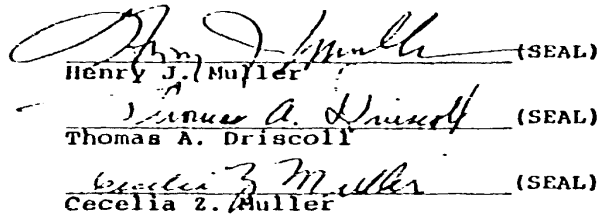 Henry J. Muller (SEAL)
Henry J. Muller
Thomas A. Driscoll (SEAL)
Thomas A. Driscoll
Cecelia Z. Muller (SEAL)
Cecelia Z. Muller